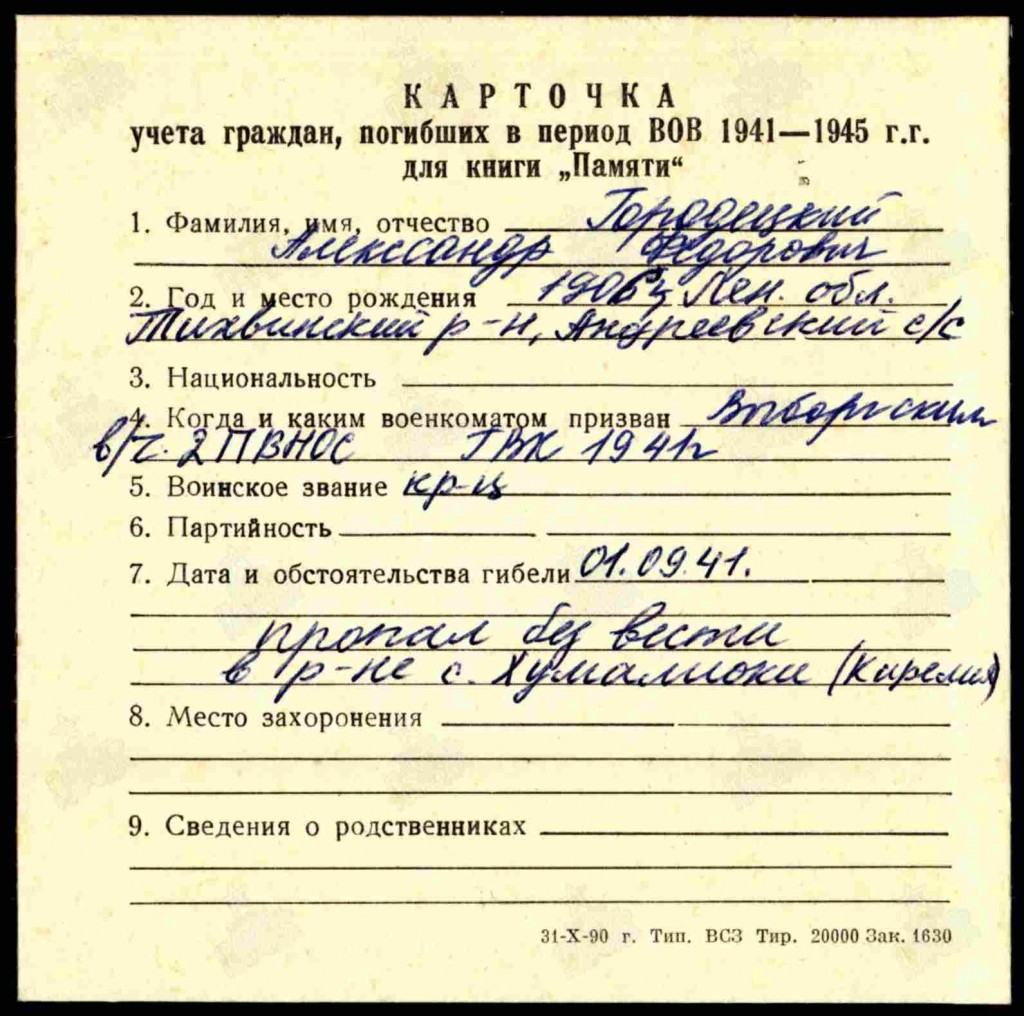 КАРТОЧКА
учета граждан, погибших в период ВОВ 1941—1945 г.г.
для книги „Памяти“
1. Фамилия, имя, отчество Городецкий
Александр Федорович
2. Год и место рождения 1906 Лен. обл.
Тихвинский р-н, Андреевский с/с
3. Национальность
4. Когда и каким военкоматом призван Выборгским
в/ч. 2 ПВНОС ГВК 1941г
5. Воинское звание кр-ц
6. Партийность
7. Дата и обстоятельства гибели 01.09.41.
пропал без вести
в р-не с. Хумалиоки (Карелия)
8. Место захоронения
9. Сведения о родственниках
31-X-90 г. Тип. ВСЗ Тир. 20000 Зак. 1630